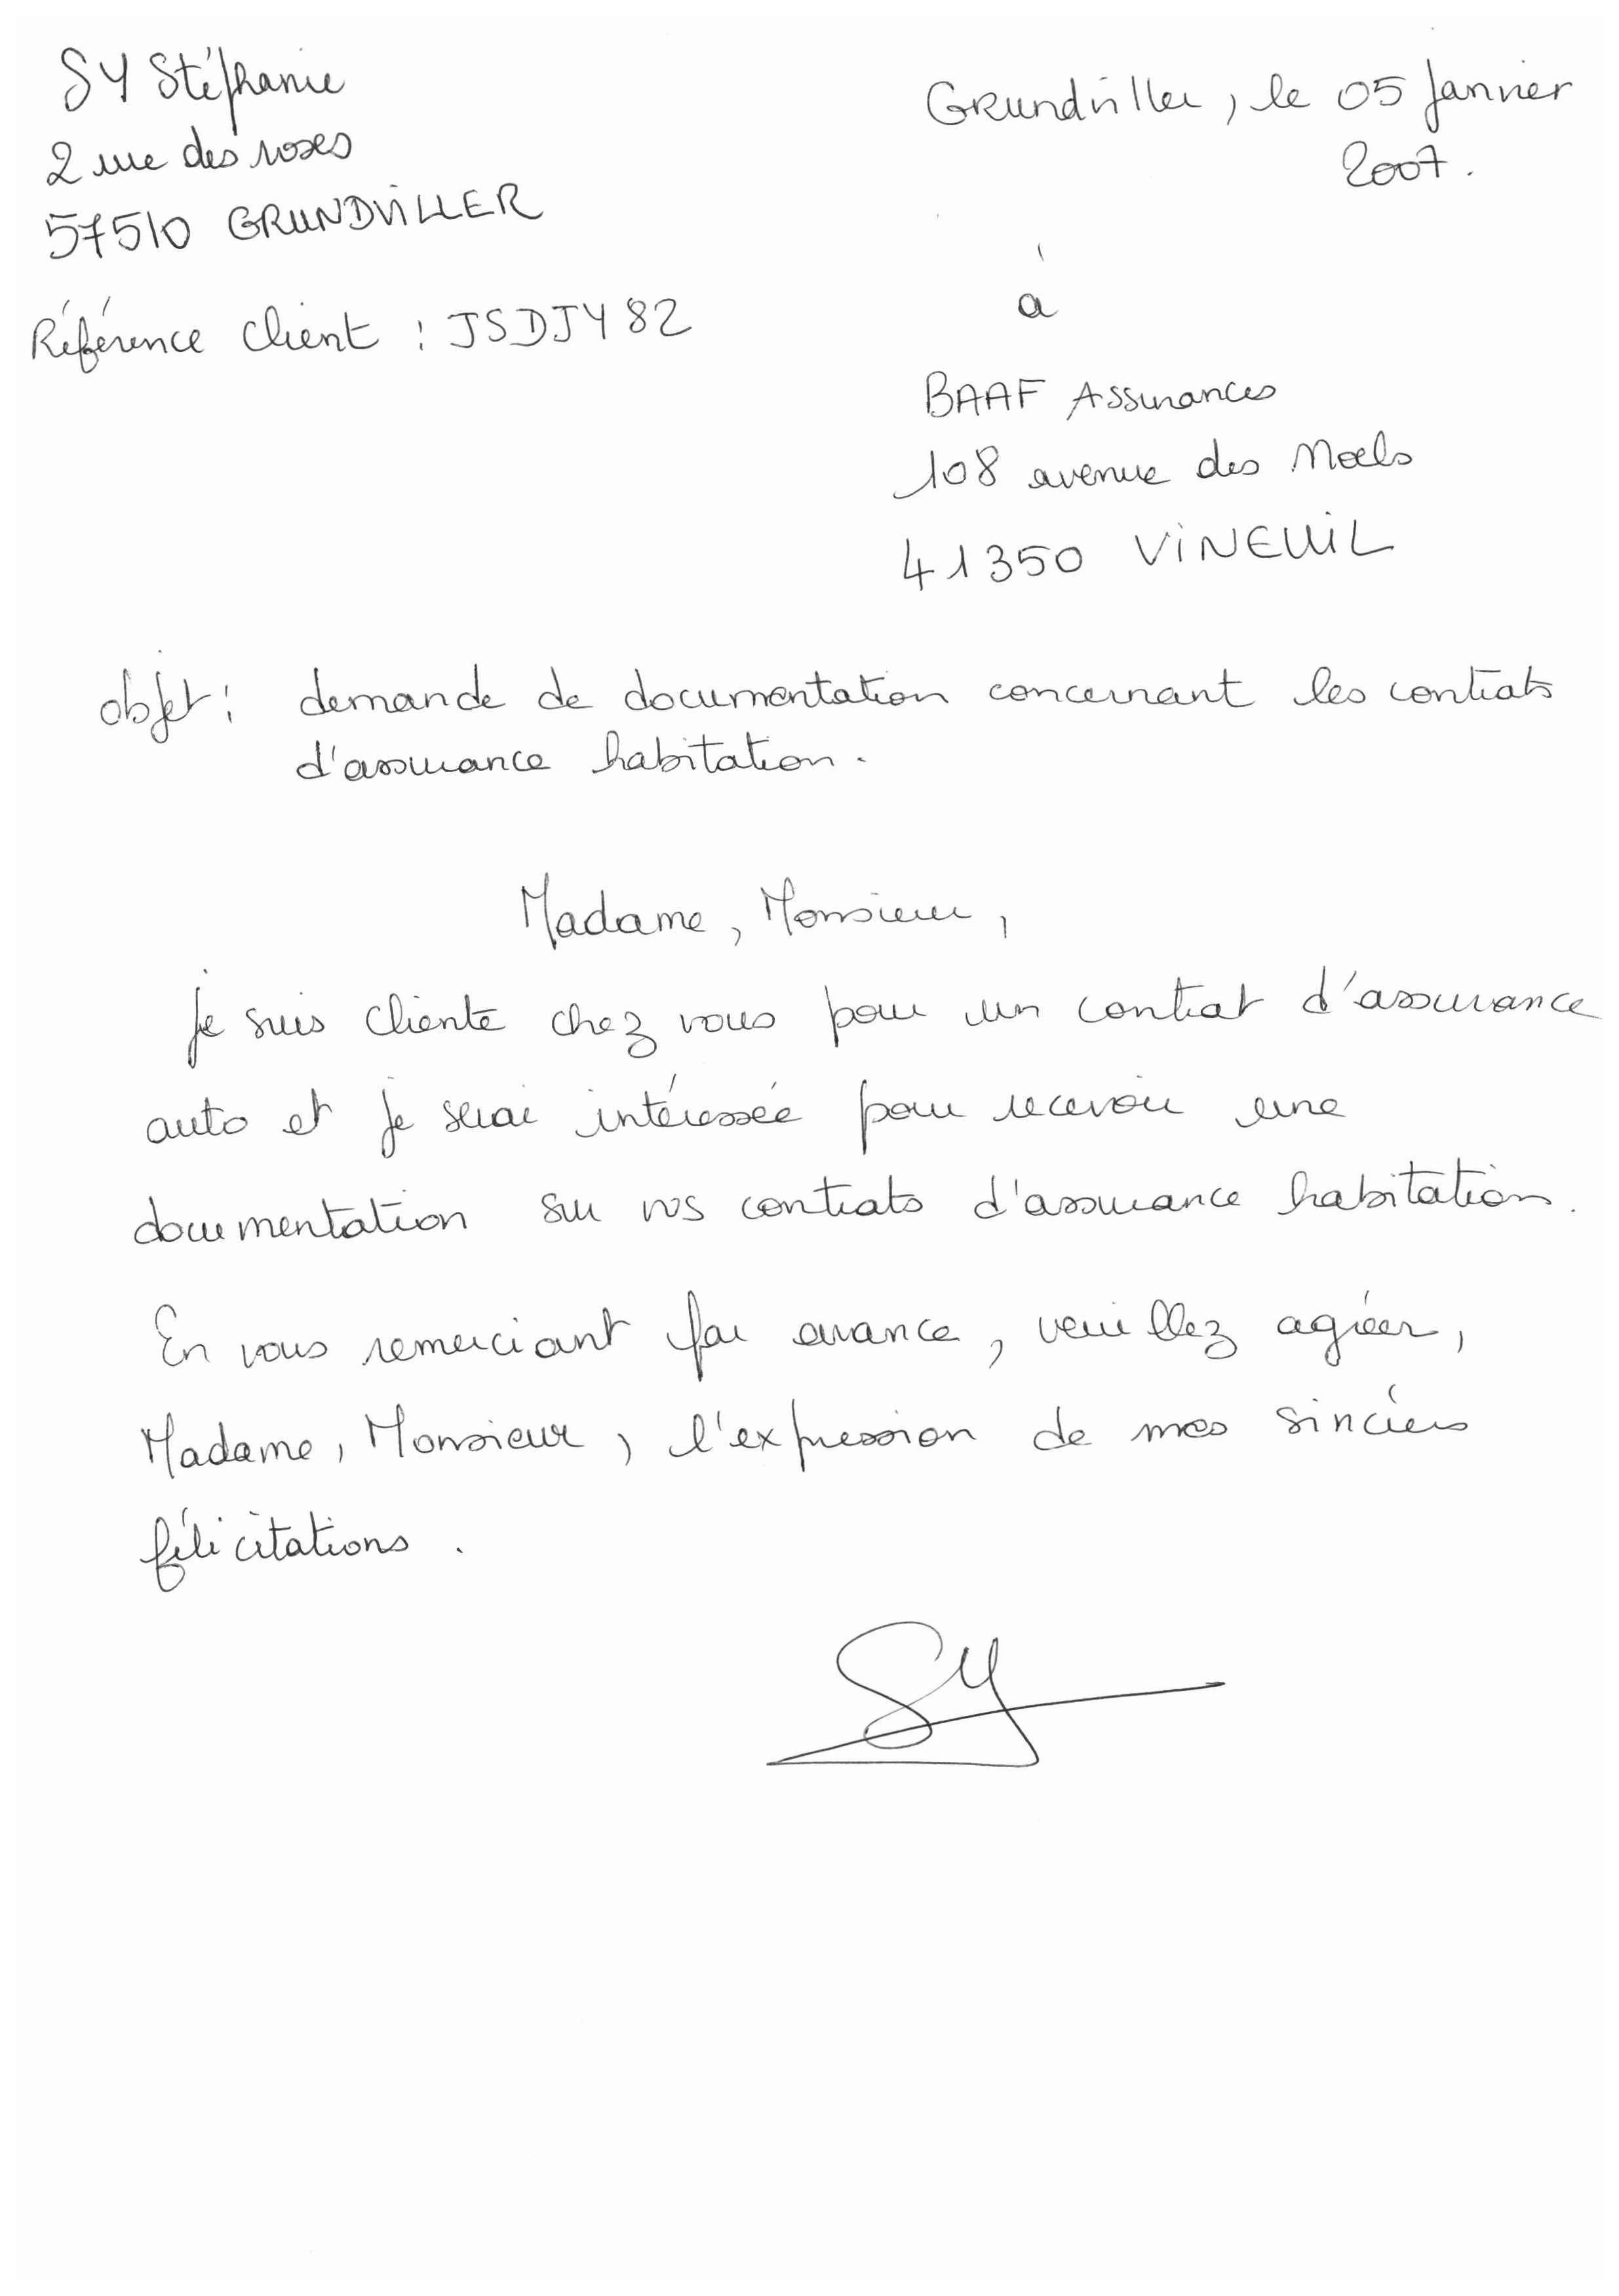 SY Stéphanie
2 rue des roses
57510 GRUNDVILLER
Référence Client : JSDJY82
Grundviller, le 05 Janvier
2007.
à
BAAF Assurances
108 avenue des Noels
41350 VINEUIL
objet : demande de documentation concernant les contrats
d'assurance habitation.
Madame, Monsieur,
Je suis cliente chez vous pour un contrat d'assurance
auto et je serai intéressée pour recevoir une
documentation sur vos contrats d'assurance habitation.
En vous remerciant par avance, veuillez agréer,
Madame, Monsieur, l'expression de mes sincères
félicitations.
SY